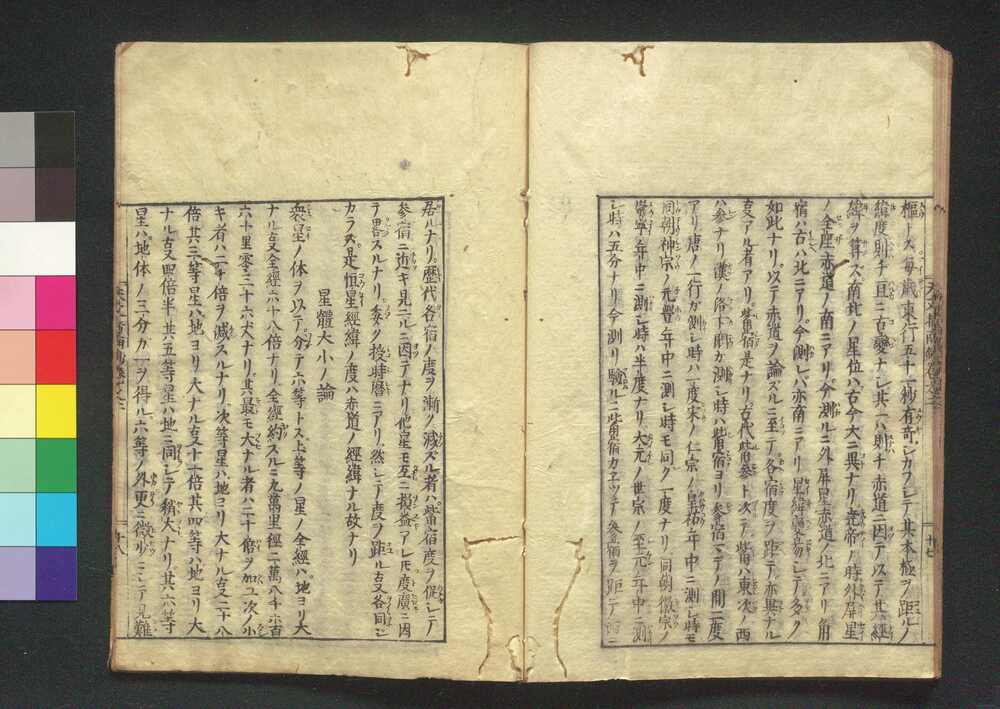 樞トス每歲東行五十一秒有奇シカフシテ其本極ヲ距ルノ
緯度則チ亘ニ古變ナシ其一ハ則チ赤道ニ因テ以テ其經
緯ヲ算ス南北ノ星位ハ古今大ニ異ナリ堯帝ノ時外屏星
ノ全座赤道ノ南ニアリ今測ルニ外屏星赤道ノ北ニアリ角
宿ハ古ハ北ニアリ今測レバ亦南ニアリ星緯變易シテ多ク
如此ナリ以テ赤道ヲ論スルニ至テ各宿度ヲ距テ亦異ナル
アル者アリ觜宿是ナリ古代觜參ト次テ觜ハ東次ノ西
ハ參ナリ漢ノ落下閎カ測シ時ハ觜宿ヨリ參宿マデノ間二度
アリ唐ノ一行カ測シ時ハ一度宋ノ仁宗ノ皇祐年中ニ測シ時モ
同朝神宗ノ元豐年中ニ測シ時モ同ク一度ナリ同朝徽宗ノ
崇寧年中ニ測シ時ハ半度ナリ大元ノ世宗ノ至元年中ニ測
シ時ハ五分ナリ今測リ驗ルニ觜宿カエツテ參宿ヲ距テノ
居ルナリ歷代各宿ノ度ヲ漸ク減スル者ハ觜宿度ヲ促シテ
參宿ニ近キ見ユルニ因テナリ他星モ互ニ損益アレ𪜈度廣ニ因
テ畧スルナリ委ク授時曆ニアリ然シテ度ノ距ル各同シ
カラス是恒星經緯ノ度ハ赤道ノ經緯ナル故ナリ
星體大小ノ論
衆星ノ体ヲ以テ分テ六等トス上等ノ星ノ全經ハ地ヨリ大
ナル全經六十八倍ナリ全經約スルニ九萬里徑二萬八千六百
六十里零三十六丈ナリ其最モ大ナル者ハ二十倍ヲ加ユ次ノ小
キ者ハ二十倍ヲ減スルナリ次等星ハ地ヨリ大ナル二十八
倍其三等星ハ地ヨリ大ナル十一倍其四等ハ地ヨリ大
ナル四倍半其五等星ハ地ニ同シテ稍大ナリ其六等
星ハ地体ノ三分カ一ヲ得ル六等ノ外更ニ微少ニシテ見難